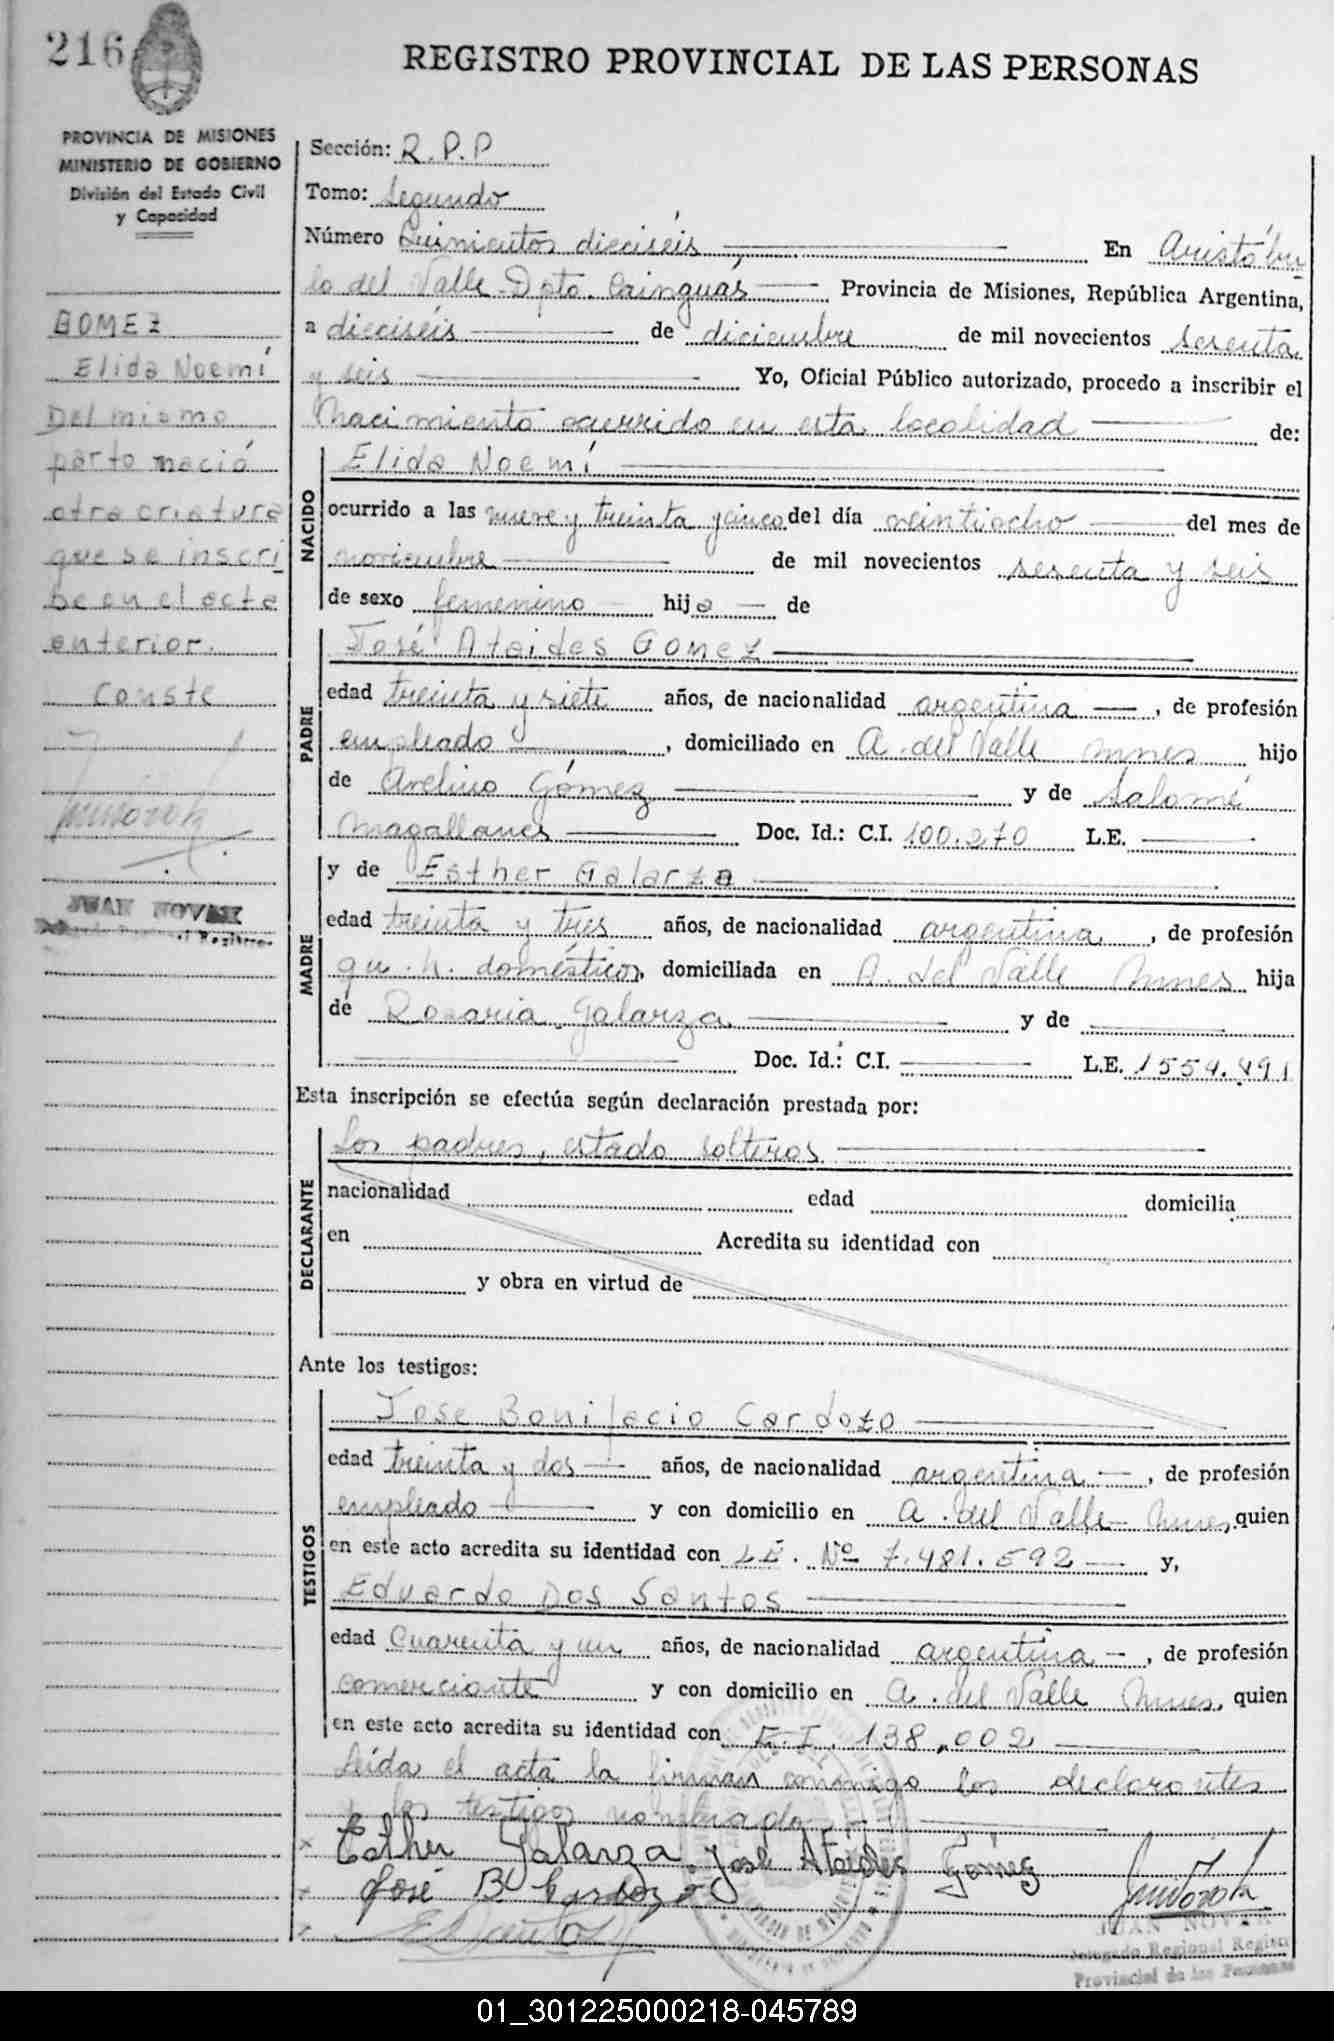 216
REGISTRO PROVINCIAL DE LAS PERSONAS
PROVINCIA DE MISIONES
MINISTERIO DE GOBIERNO
División del Estado Civil
y Capacidad
GOMEZ
Elida Noemí
Del mismo
parto nació
otra criatura
que se inscri
be en el acta
anterior.
Conste
JUAN NOVAK
Sección: R.P.P
Tomo: Segundo
Número Quinientos dieciséis En Aristóbu
lo del Valle Dpto. Cainguás Provincia de Misiones, República Argentina,
a dieciséis de diciembre de mil novecientos sesenta
y seis Yo, Oficial Público autorizado, procedo a inscribir el
Nacimiento ocurrido en esta localidad de:
NACIDO
Elida Noemí
ocurrido a las nueve y treinta y cinco del día veintiocho del mes de
noviembre de mil novecientos sesenta y seis
de sexo femenino hija de
PADRE
José Ataides Gomez
edad treinta y siete años, de nacionalidad argentina, de profesión
empleado, domiciliado en A. del Valle Mnes hijo
de Avelino Gómez y de Salomé
Magallanes Doc. Id.: C.I. 100.270 L.E.
MADRE
y de Esther Galarza
edad treinta y tres años, de nacionalidad argentina, de profesión
qu. h. domésticos, domiciliada en A. del Valle Mnes hija
de Rosaria Galarza y de
Doc. Id.: C.I. L.E.
Esta inscripción se efectúa según declaración prestada por:
DECLARANTE
Los padres, estado solteros
nacionalidad edad domicilia
en Acredita su identidad con
y obra en virtud de
Ante los testigos:
TESTIGOS
Jose Bonifacio Cardozo
edad treinta y dos años, de nacionalidad argentina, de profesión
empleado y con domicilio en A. del Valle Mnes, quien
en este acto acredita su identidad con L.E. Nº 7.481.592 y,
Eduardo Dos Santos
edad Cuarenta y un años, de nacionalidad argentina, de profesión
comerciante y con domicilio en A. del Valle Mnes, quien
en este acto acredita su identidad con 138.002
Leída el acta la firman conmigo los declarantes
y los testigos nombrados
Esther Galarza José Ataides Gómez
José B Cardozo
JUAN NOVAK
Delegado Regional Registro
Provincial de las Personas
01_301225000218-045789